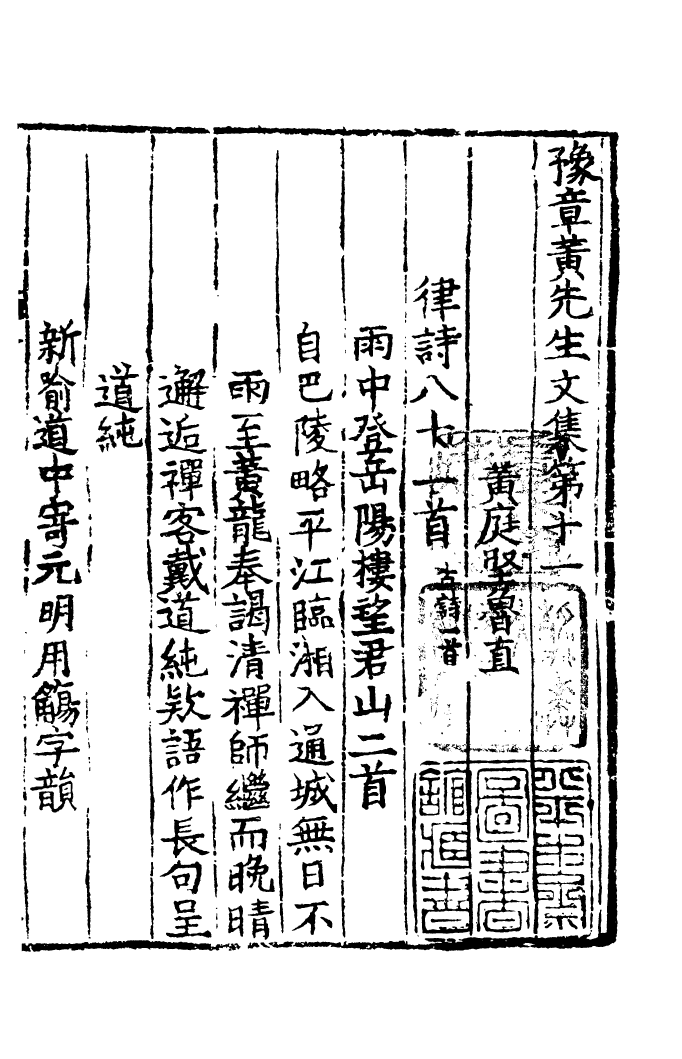 豫章黃先生文集第十一
黃庭堅魯直
律詩八十一首 古詩一首
雨中登岳陽樓望君山二首
自巴陵略平江臨湘入通城無日不
雨至黃龍奉謁清禪師繼而晚晴
邂逅禪客戴道純欵語作長句呈
道純
新喻道中寄元明用觴字韻